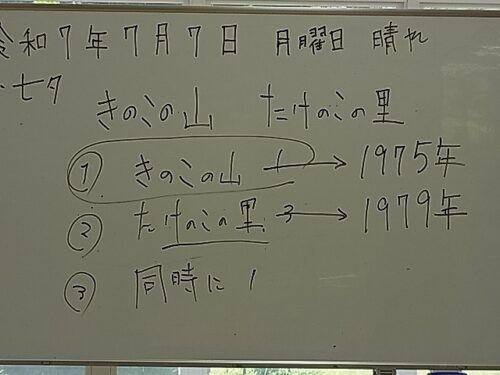 令和7年7月7日 月曜日 晴れ
・七夕
きのこの山 たけのこの里
① きのこの山 1 → 1975年
② たけのこの里 3 → 1979年
③ 同時に 1